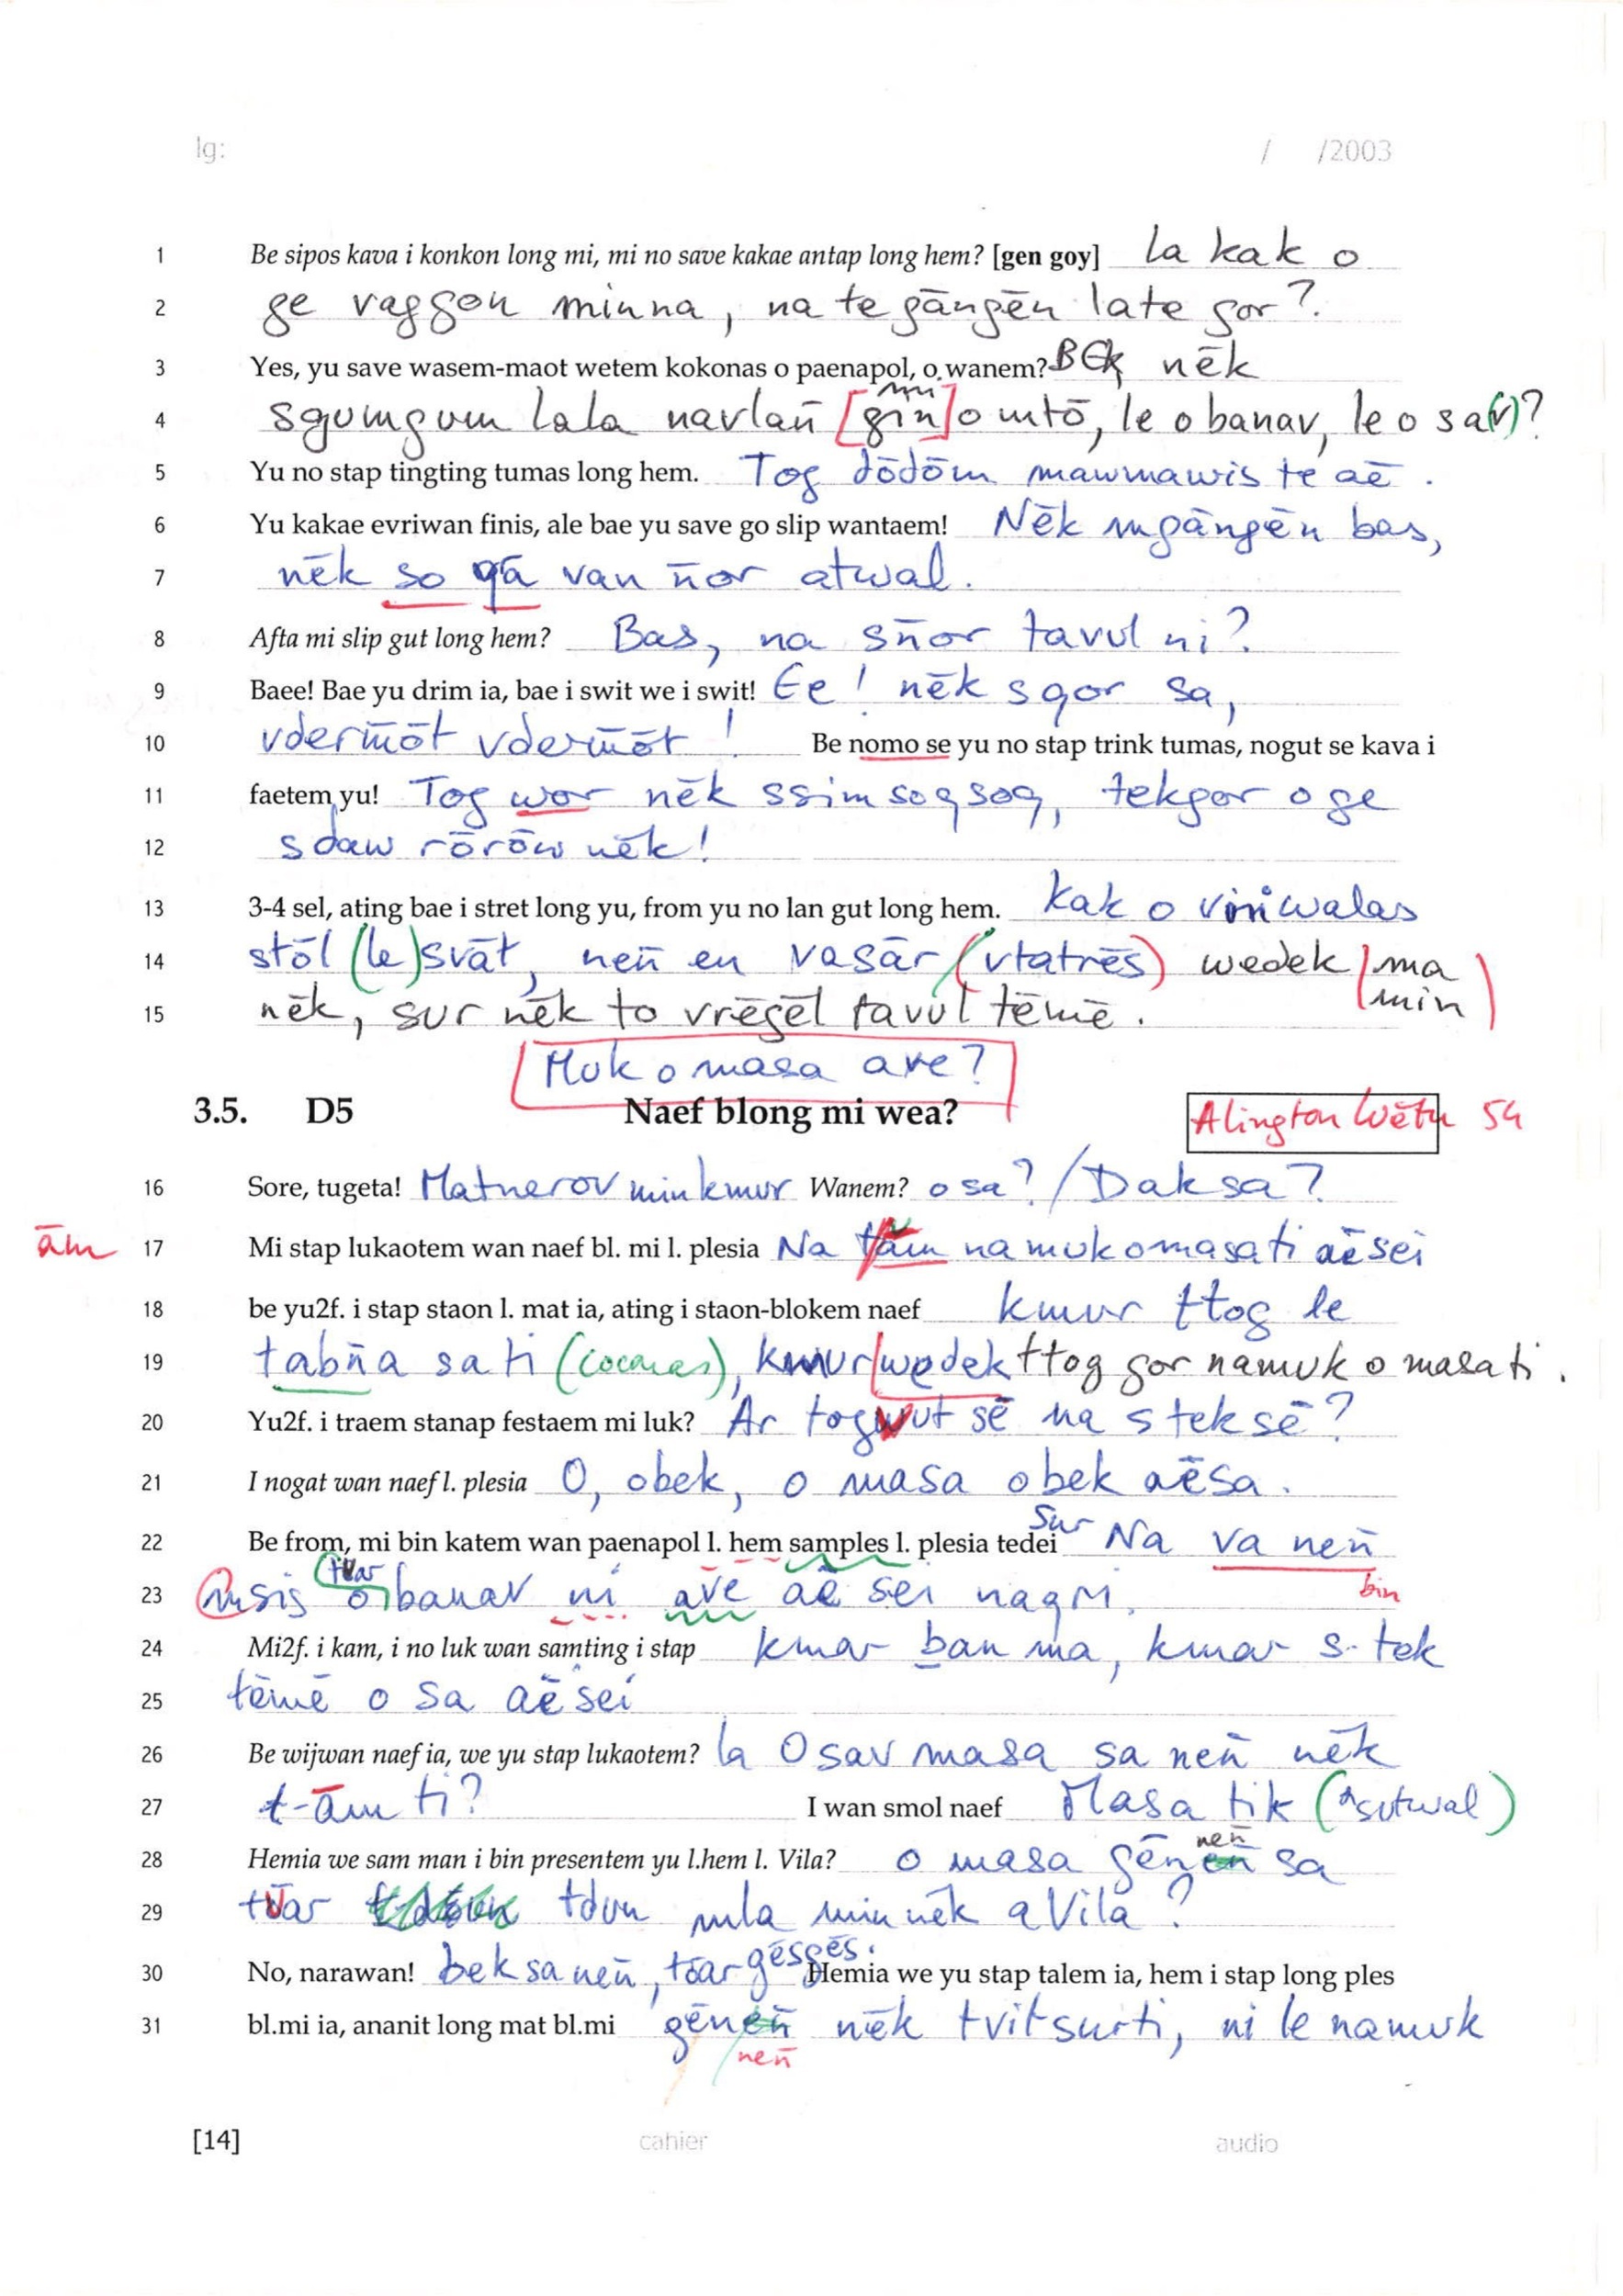 lg: / /2003
1 Be sipos kava i konkon long mi, mi no save kakae antap long hem? [gen goy] la kak o
2 ge vaggon minna, na te gāngēn late gor?
3 Yes, yu save wasem-maot wetem kokonas o paenapol, o wanem? BEk nēk
4 sgumgum lala navlan̄ [gin] mi o mtō, le o banav, le o sa(v)?
5 Yu no stap tingting tumas long hem. Tog dōdōm mawmawis te aē.
6 Yu kakae evriwan finis, ale bae yu save go slip wantaem! Nēk mgāngēn bas,
7 nēk so qā van n̄or atwal.
8 Afta mi slip gut long hem? Bas, na sn̄or tavul ni?
9 Baee! Bae yu drim ia, bae i swit we i swit! Ee! nēk sqor sa,
10 vderm̄ōt vderm̄ōt! Be nomo se yu no stap trink tumas, nogut se kava i
11 faetem yu! Tog wor nēk ssim soqsoq, tekgor o ge
12 sdaw rōrōw nēk!
13 3-4 sel, ating bae i stret long yu, from yu no lan gut long hem. kak o vin̄walas
14 stōl (le) svāt, nen̄ en vasār (vtatrēs) wedek (ma min)
15 nēk, sur nēk to vrēgēl tavul tēm̄ē.
Muk o masa ave?
3.5. D5 Naef blong mi wea? Alington Wētu 54
16 Sore, tugeta! Matnerov min kmur Wanem? o sa? / Dak sa?
ām 17 Mi stap lukaotem wan naef bl. mi l. plesia Na tām namuk o masa ti aē sei
18 be yu2f. i stap staon l. mat ia, ating i staon-blokem naef kmur ttog le
19 tabn̄a sa ti (coconas), kmur/wedek ttog gor namuk o masa ti.
20 Yu2f. i traem stanap festaem mi luk? Ar tog wut sē na s tek sē?
21 I nogat wan naef l. plesia O, obek, o masa obek aē sa.
22 Be from, mi bin katem wan paenapol l. hem samples l. plesia tedei Sur Na va nen̄
23 msis tuar o banav ni ave aē sei naqri. bin
24 Mi2f. i kam, i no luk wan samting i stap kmar ban ma, kmar s-tek
25 tēm̄ē o sa aē sei
26 Be wijwan naef ia, we yu stap lukaotem? la O sav masa sa nen̄ nēk
27 t-ām ti? I wan smol naef Masa tik (sutwal)
28 Hemia we sam man i bin presentem yu l.hem l. Vila? o masa gēn nen̄ sa
29 tuar tdun mla min nēk a Vila?
30 No, narawan! bek sa nen̄, tōar gēsgēs. Hemia we yu stap talem ia, hem i stap long ples
31 bl.mi ia, ananit long mat bl.mi gēnen̄ nen̄ nēk tvit surti, ni le namuk
[14] cahier audio